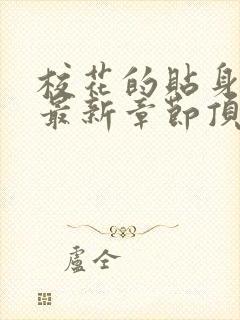 校花的貼身
最新章節頂
盧仝